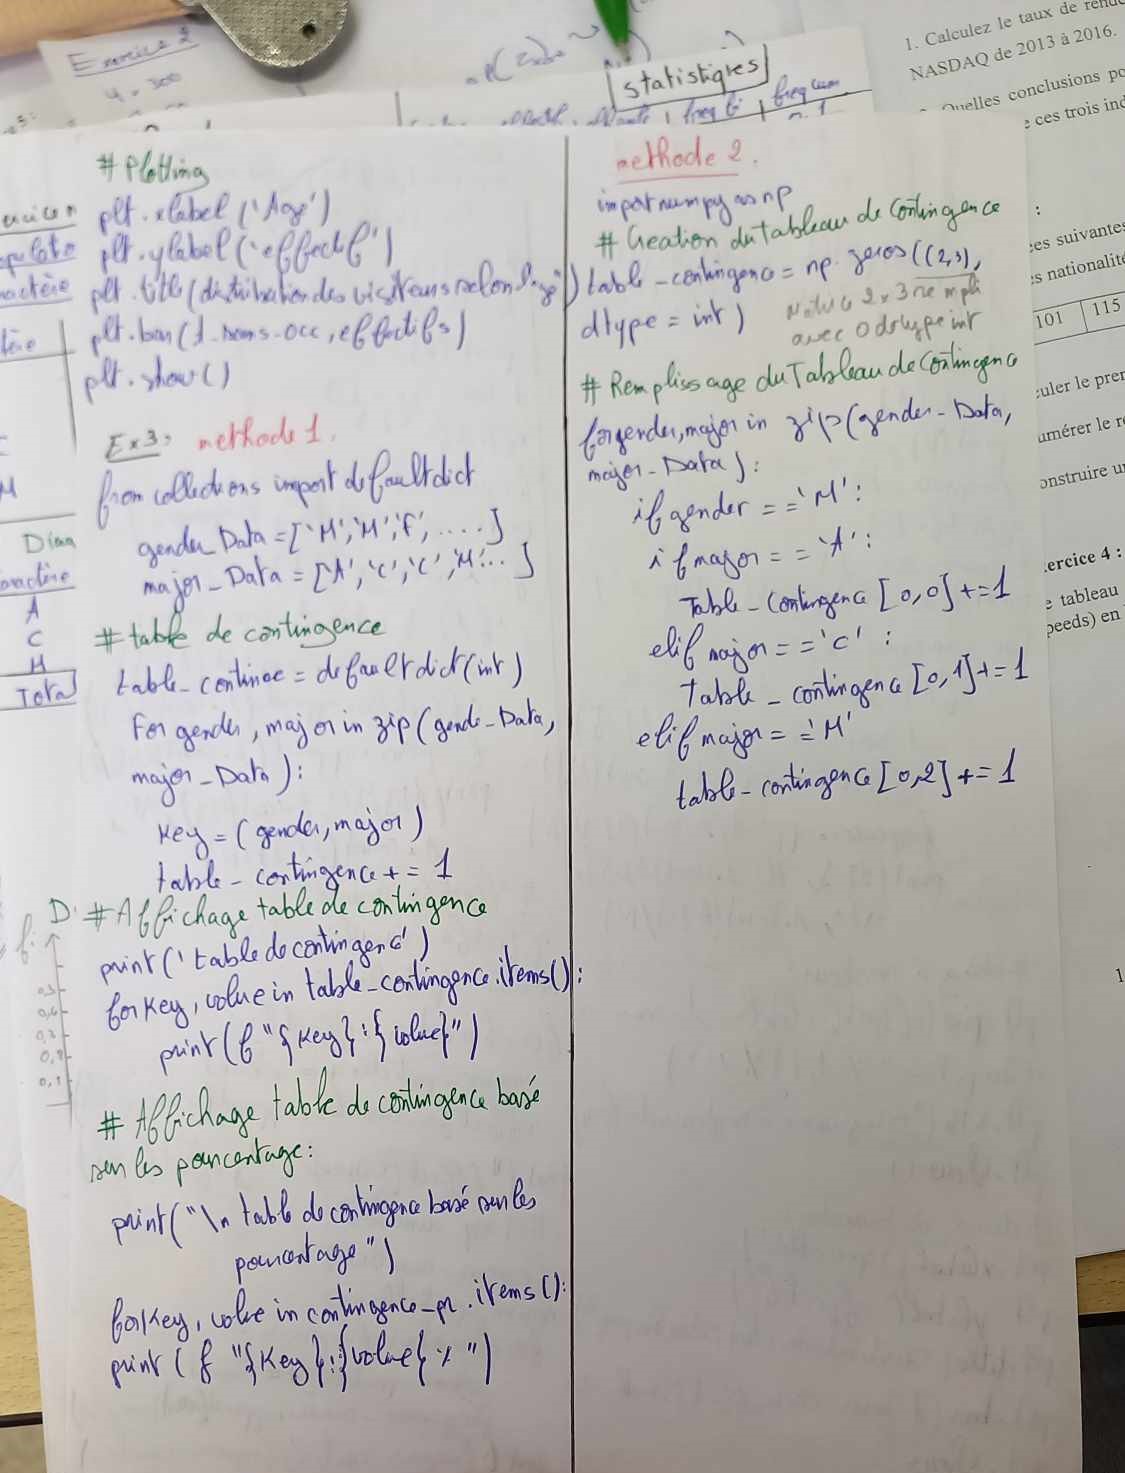 Exercice 2
statistiques
1. Calculez le taux de
NASDAQ de 2013 à 2016.
Quelles conclusions
ces trois
# Plotting
plt.xlabel ('Age')
plt.ylabel ('effectif')
plt.title (distribution des visiteurs selon l'age')
plt.bar (l-noms-occ, effectifs)
plt.show ()
Ex3: methode 1.
from collections import defaultdict
gender_Data = ['M', 'M', 'F', .....]
major_Data = ['A', 'C', 'C', 'M'... ]
# table de contingence
table_continoe = defaultdict(int)
For gender, major in zip (gende_Data,
major_Data):
Key = (gender, major)
table_contingence += 1
# Affichage table de contingence
print(' table de contingence')
for Key, value in table_contingence.items():
print(f "{Key}:{value}")
# Affichage table de contingence basé
sur les pourcentage:
print("\n table de contingence basé sur les
pourcentage")
for Key, value in contingence_pr.items():
print (f "{Key}:{value{ % ")
methode 2.
import numpy as np
# Creation du tableau de contingence
table_contingence = np.zeros((2,3),
dtype = int)
matrice 2x3 rempli
avec 0 de type int
# Remplissage du Tableau de contingence
for gender, major in zip(gender_Data,
major_Data):
if gender == 'M':
if major == 'A':
Table_contingence [0,0] += 1
elif major == 'C' :
Table_contingence [0,1] += 1
elif major == 'M'
table_contingence [0,2] += 1
:
suivantes
nationalité
101 115
Dima
A
C
M
Total
ercice 4 :
tableau
en